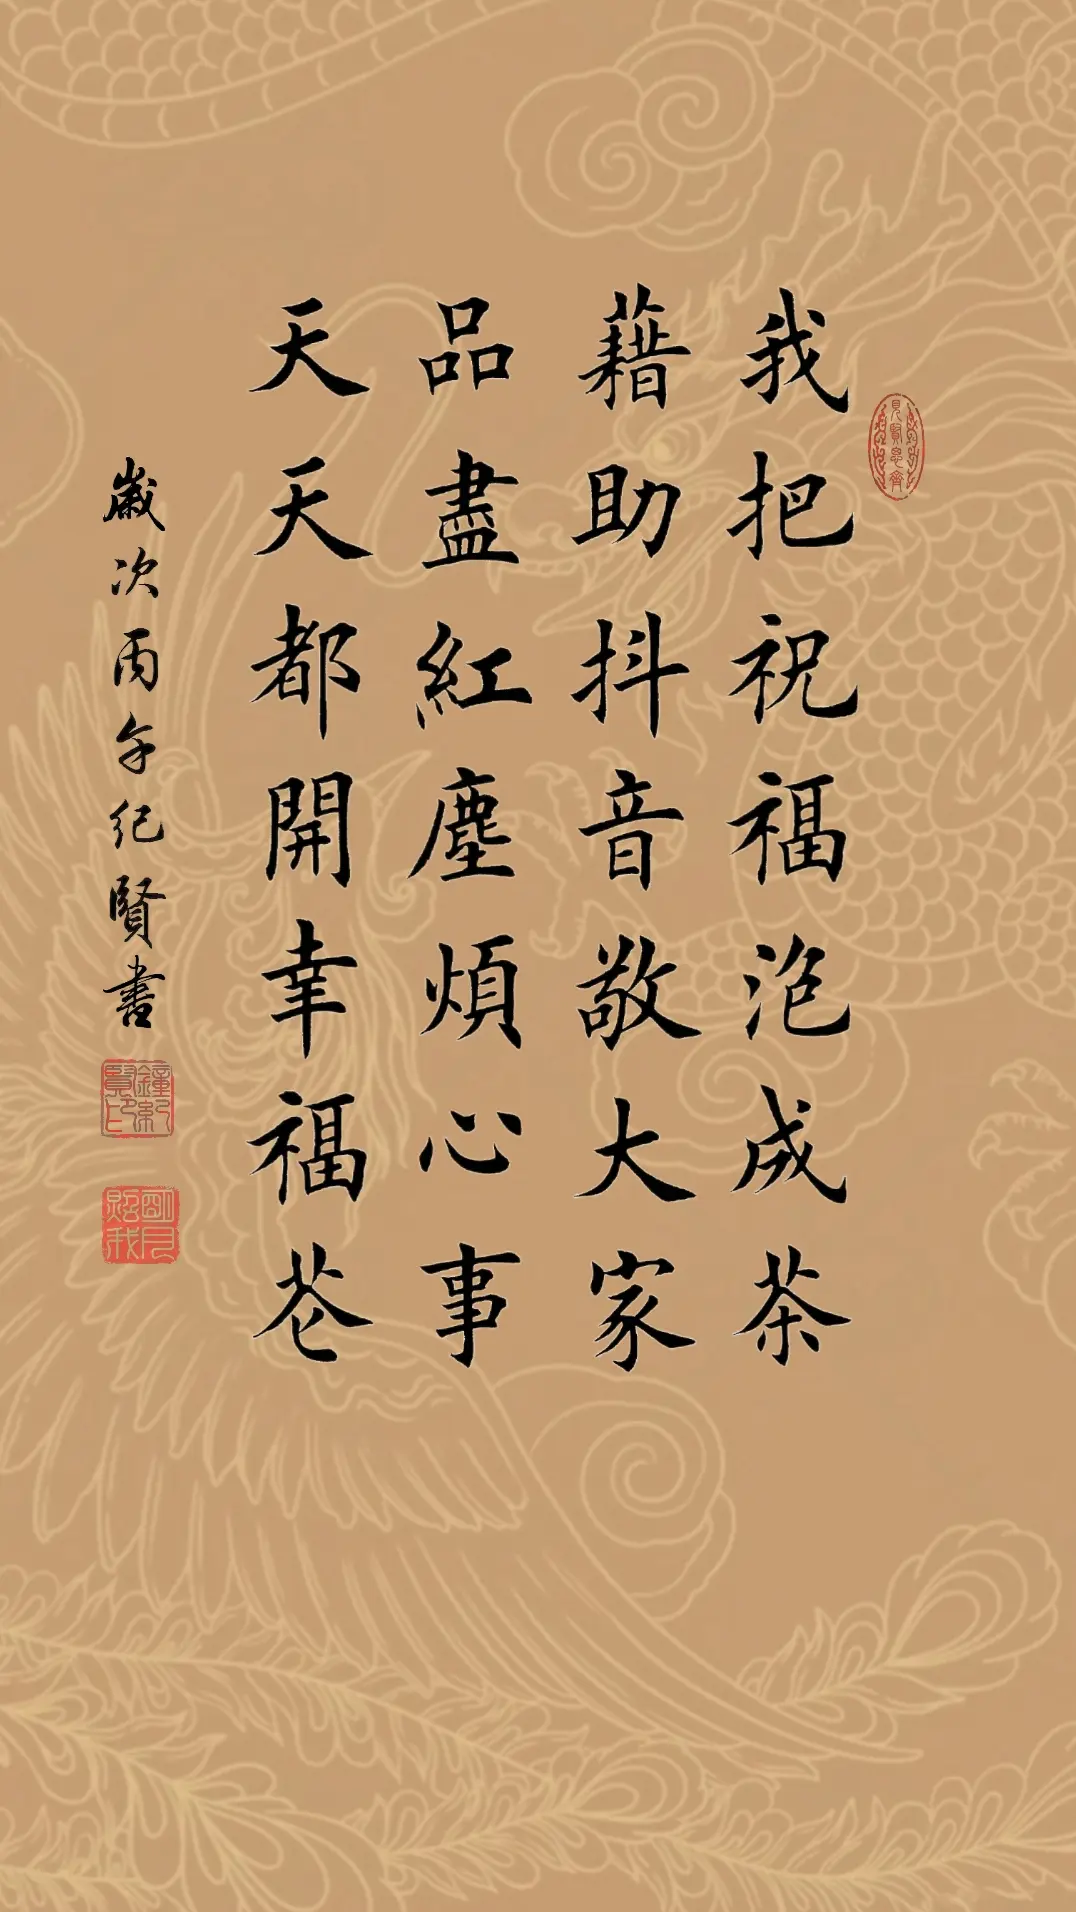 我把祝福泡成茶
藉助抖音敬大家
品盡紅塵煩心事
天天都開幸福花
歲次丙午紀賢書
見賢思齊
鐘紀賢印